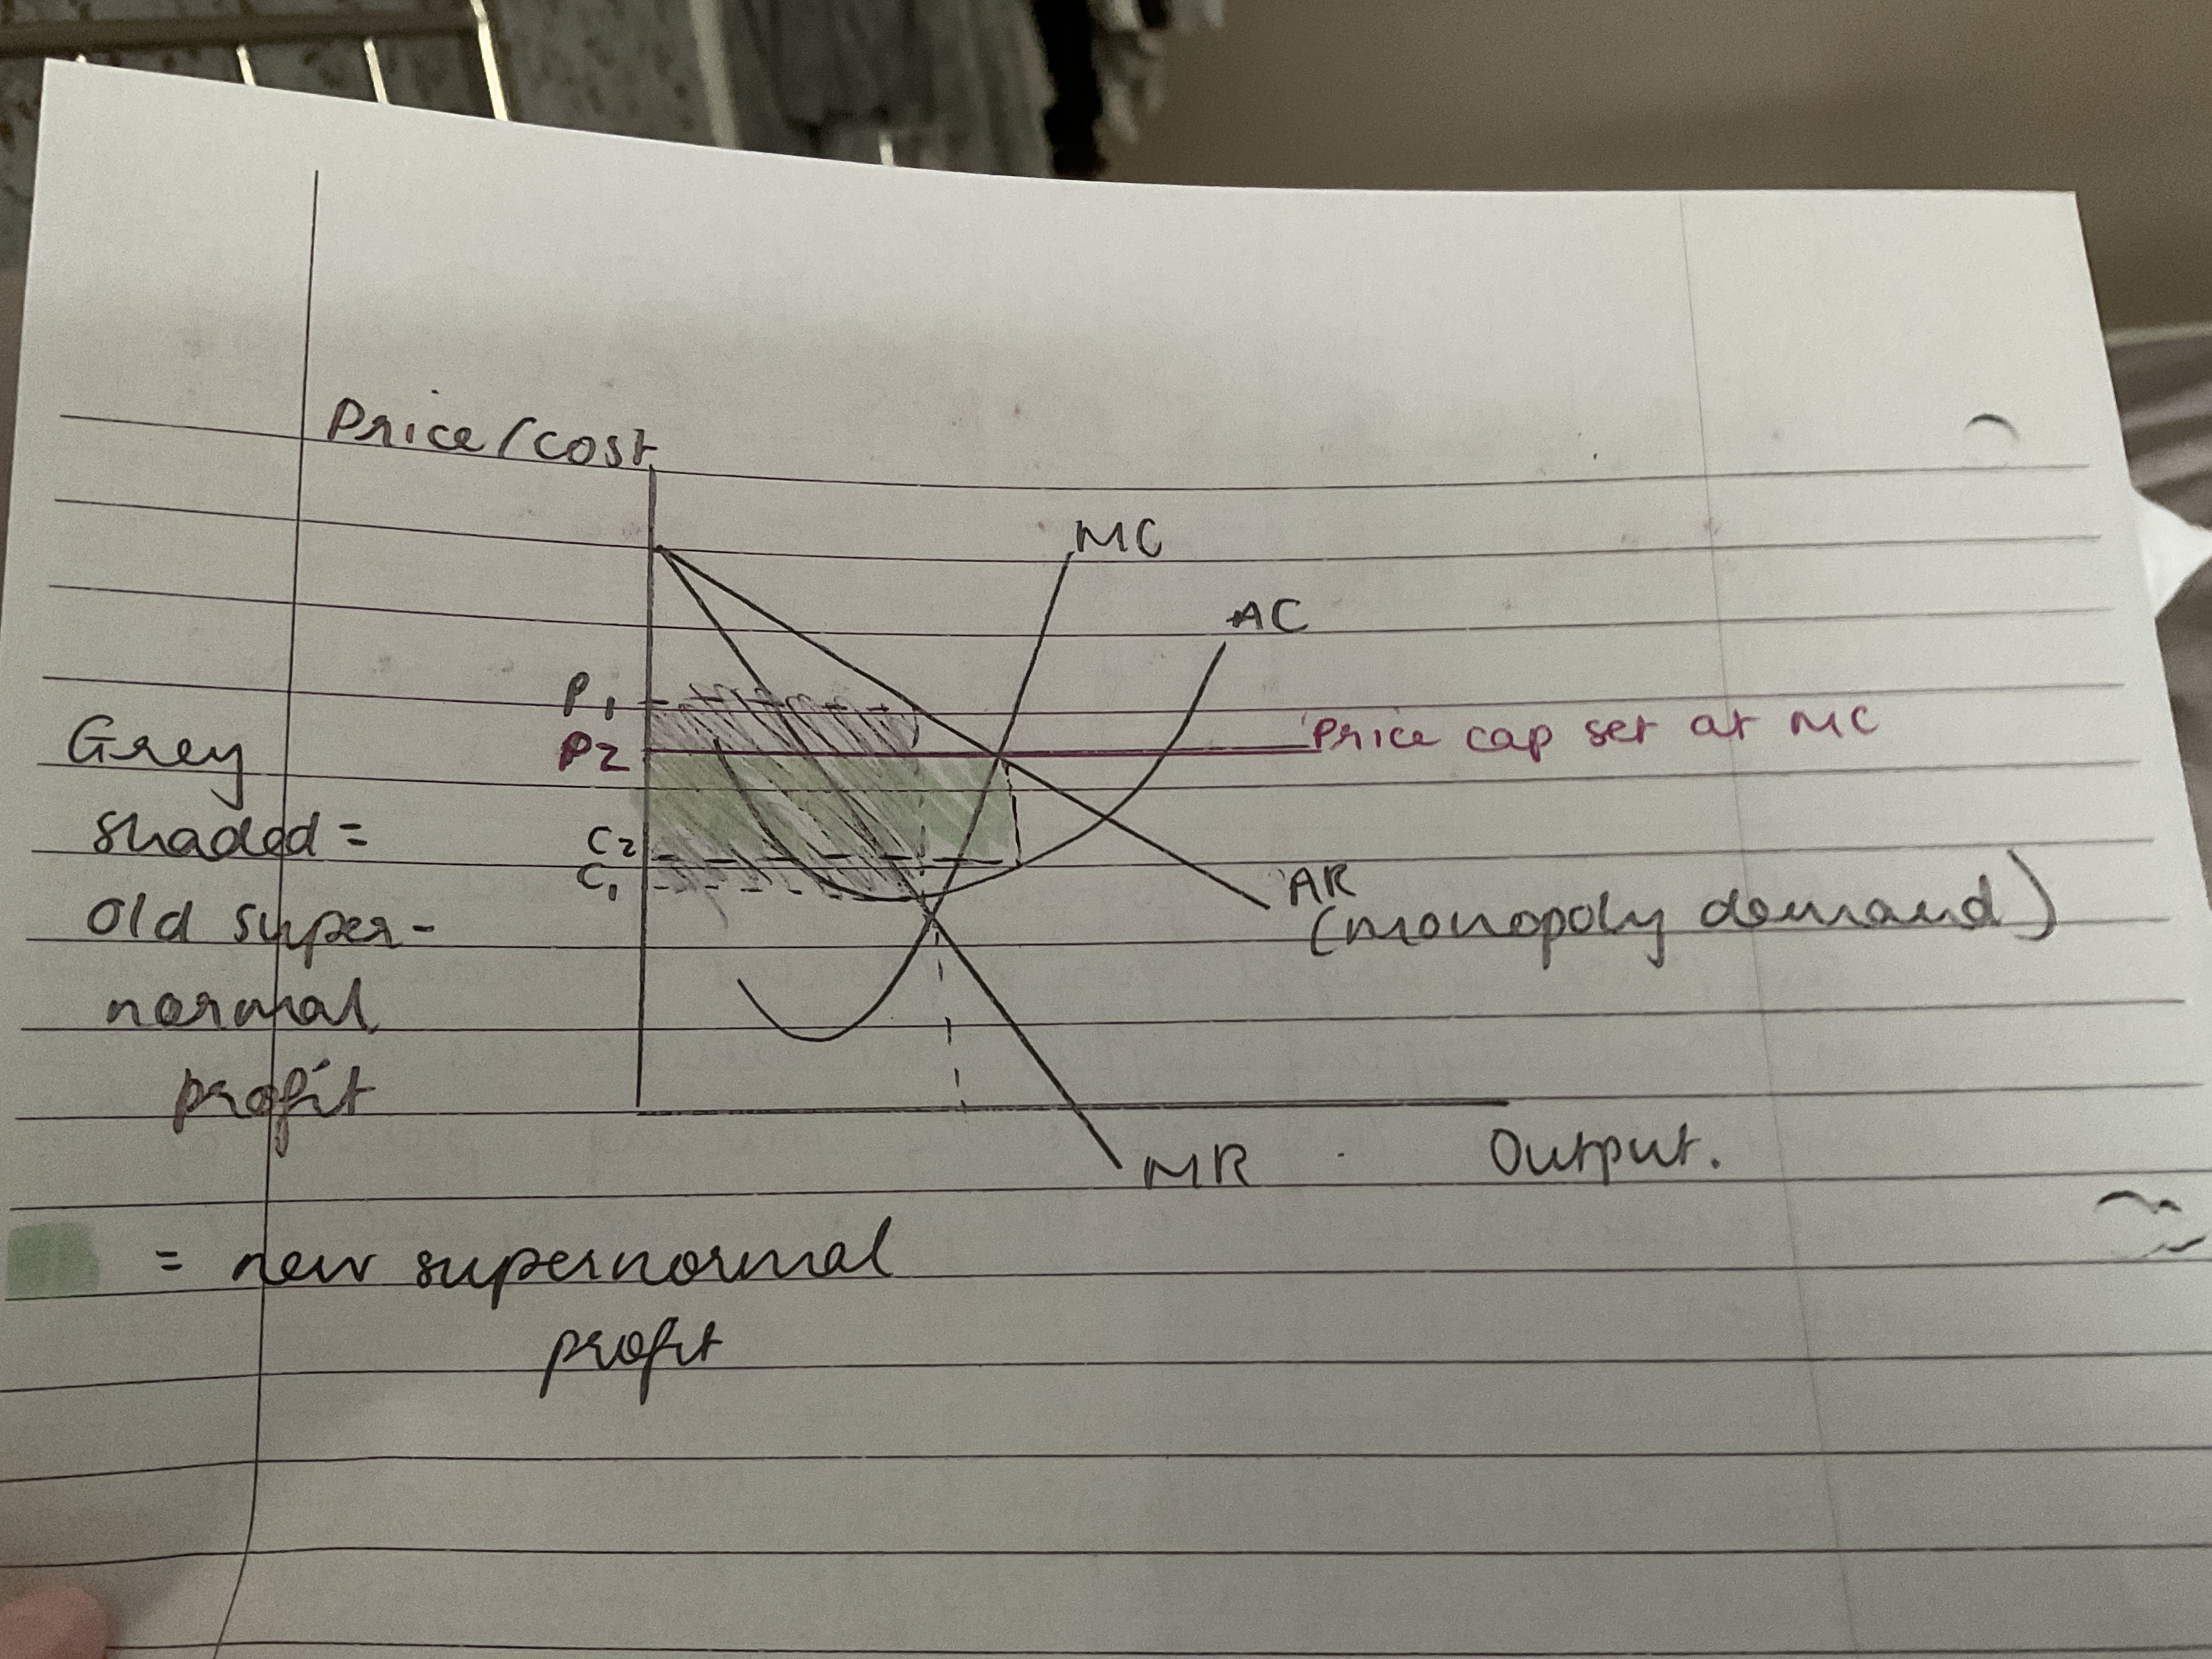 Price/cost
MC
AC
P1
Price cap set at MC
P2
Grey
shaded =
old super-
normal
profit
C2
C1
AR
(monopoly demand)
MR
Output.
= new supernormal
profit